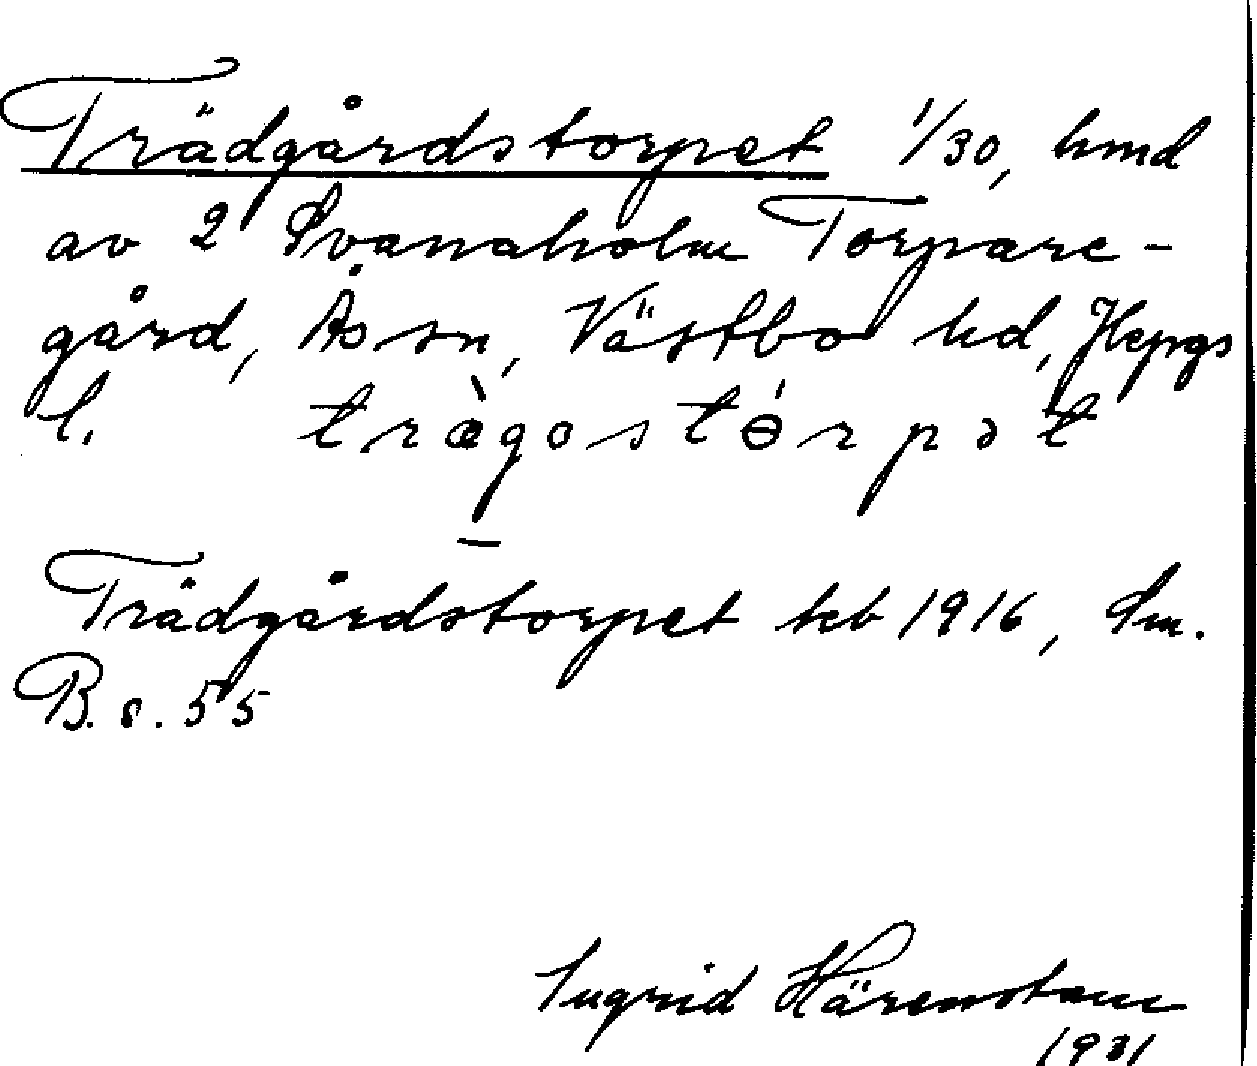 Trädgårdstorpet 1/30, hmd
av 2 Svanaholm Torpare-
gård, Ås sn, Västbo hd, Jkpgs
l. trὰgostɵ́rpət
—
Trädgårdstorpet kb 1916, Sm.
B. s. 55
Ingrid Härenstam
1931